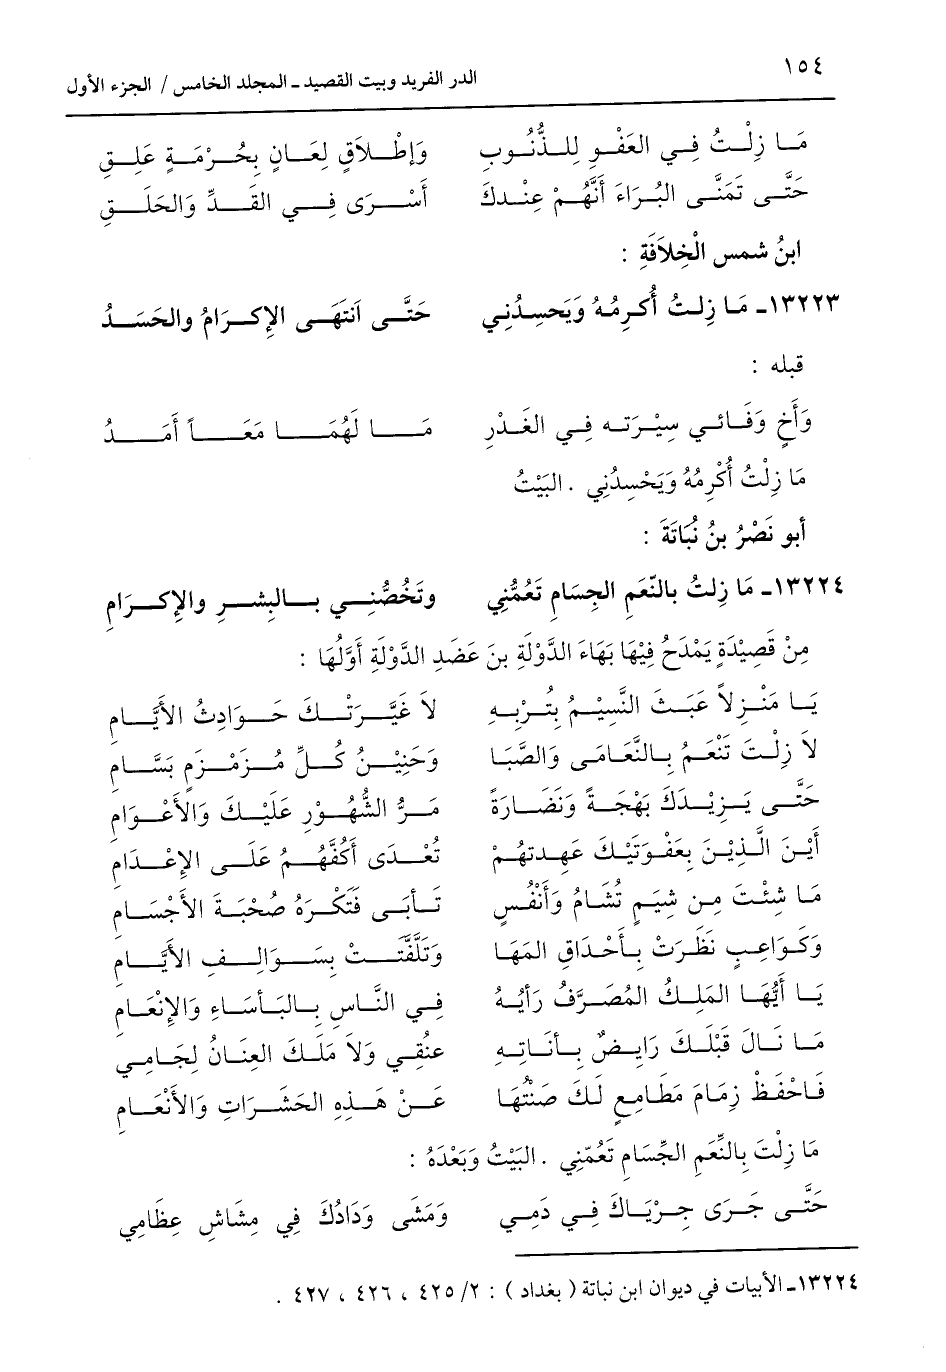 ١٥٤
الدر الفريد وبيت القصيد ـ المجلد الخامس / الجزء الأول
مَا زِلْتُ فِي العَفْوِ لِلذُّنُوبِ وَإِطْلاَقٍ لِعَانٍ بِحُرْمَةٍ عَلِقِ
حَتَّى تَمَنَّى البُرَاءَ أَنَّهُمْ عِنْدَكَ أَسْرَى فِي القَدِّ وَالحَلَقِ
ابنُ شمسِ الْخِلاَفَةِ :
١٣٢٢٣ـ مَا زِلتُ أُكرِمُهُ وَيَحسِدُنِي حَتَّى انتَهَى الإِكرَامُ والحَسَدُ
قبله :
وَأَخٍ وَفَائي سِيْرَته فِي الغَدْرِ مَا لَهُمَا مَعَاً أَمَدُ
مَا زِلْتُ أُكْرِمُهُ وَيَحْسِدُنِي . البَيْتُ
أبو نَصْرُ بنُ نُبَاتَةَ :
١٣٢٢٤ـ مَا زِلتُ بالنِّعَمِ الجِسَامِ تَعُمُّنِي وتَخُصُّنِي بالبِشرِ والإِكرَامِ
مِنْ قَصِيْدَةٍ يَمْدَحُ فِيْهَا بَهَاءَ الدَّوْلَةِ بنَ عَضَدِ الدَّوْلَةِ أَوَّلُهَا :
يَا مَنْزِلاً عَبَثَ النَّسِيْمُ بِتُرْبِهِ لاَ غَيَّرَتْكَ حَوَادِثُ الأَيَّامِ
لاَ زِلْتَ تَنْعَمُ بِالنَّعَامَى وَالصَّبَا وَحَنِيْنُ كُلِّ مُزَمْزَمٍ بَسَّامِ
حَتَّى يَزِيْدَكَ بَهْجَةً وَنَضَارَةً مَرُّ الشُّهُوْرِ عَلَيْكَ وَالأَعْوَامِ
أَيْنَ الَّذِيْنَ بِعَقْوَتَيْكَ عَهِدتَهُمْ تُعْدَى أَكُفُّهُمُ عَلَى الإِعْدَامِ
مَا شِئْتَ مِن شِيَمٍ تُشَامُ وَأَنْفُسٍ تَأْبَى فَتَكْرَهُ صُحْبَةَ الأَجْسَامِ
وَكَوَاعِبٍ نَظَرَتْ بِأَحْدَاقِ المَهَا وَتَلَفَّتَتْ بِسَوَالِفِ الأَيَّامِ
يَا أَيُّهَا المَلِكُ المُصَرَّفُ رَأيهُ فِي النَّاسِ بِالبَأْسَاءِ وَالإِنْعَامِ
مَا نَالَ قَبْلَكَ رَايِضٌ بِأَنَاتِهِ عنُقِي وَلاَ مَلَكَ العِنَانُ لِجَامِي
فَاحْفَظْ زِمَامَ مَطَامِعٍ لَكَ صُنْتُهَا عَنْ هَذِهِ الحَشَرَاتِ وَالأَنْعَامِ
مَا زِلْتَ بِالنِّعَمِ الجِّسَامِ تَعُمّنِي . البَيْتُ وَبَعْدَهُ :
حَتَّى جَرَى جِرْيَاكَ فِي دَمِي وَمَشَى وَدَادُكَ فِي مِشَاشِ عِظَامِي
١٣٢٢٤ـ الأبيات في ديوان ابن نباتة ( بغداد ) : ٢/ ٤٢٥ ، ٤٢٦ ، ٤٢٧ .